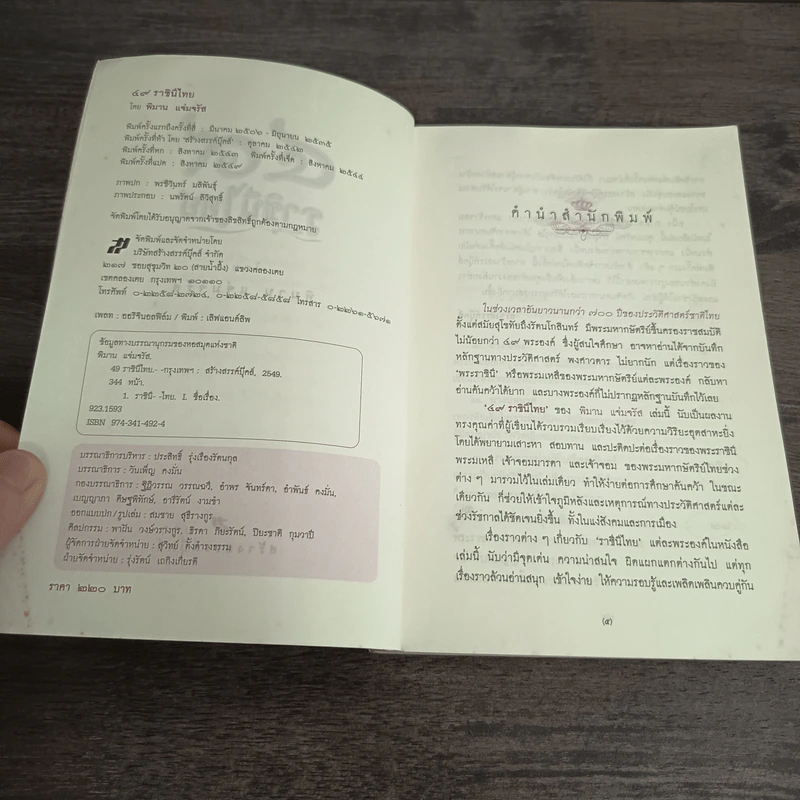 ๔๙ ราชินีไทย
โดย พิมาน แจ่มจรัส
พิมพ์ครั้งแรกถึงครั้งที่สี่ : มีนาคม ๒๕๐๖ - มิถุนายน ๒๕๓๕
พิมพ์ครั้งที่ห้า โดย 'สร้างสรรค์บุ๊คส์' : ตุลาคม ๒๕๔๒
พิมพ์ครั้งที่หก : สิงหาคม ๒๕๔๓ พิมพ์ครั้งที่เจ็ด : สิงหาคม ๒๕๔๔
พิมพ์ครั้งที่แปด : สิงหาคม ๒๕๔๙
ภาพปก : พรชีวินทร์ มลิพันธุ์
ภาพประกอบ : นพรัตน์ ลิวิสุทธิ์
จัดพิมพ์โดยได้รับอนุญาตจากเจ้าของลิขสิทธิ์ถูกต้องตามกฎหมาย
จัดพิมพ์และจัดจำหน่ายโดย
บริษัทสร้างสรรค์บุ๊คส์ จำกัด
๒๑๗ ซอยสุขุมวิท ๒๐ (สายน้ำผึ้ง) แขวงคลองเตย
เขตคลองเตย กรุงเทพฯ ๑๐๑๑๐
โทรศัพท์ ๐-๒๒๕๘-๒๗๒๔, ๐-๒๒๕๘-๕๘๕๘ โทรสาร ๐-๒๒๖๑-๕๖๗๑
เพลท : ออริจินอลฟิล์ม / พิมพ์ : เลิฟแอนด์ลิพ
ข้อมูลทางบรรณานุกรมของหอสมุดแห่งชาติ
พิมาน แจ่มจรัส.
49 ราชินีไทย.- -กรุงเทพฯ : สร้างสรรค์บุ๊คส์, 2549.
344 หน้า.
1. ราชินี- -ไทย. I. ชื่อเรื่อง.
923.1593
ISBN 974-341-492-4
บรรณาธิการบริหาร : ประสิทธิ์ รุ่งเรืองรัตนกุล
บรรณาธิการ : วันเพ็ญ คงมั่น
กองบรรณาธิการ : ฐิฏิวรรณ วรรณฉวี, อำพร จันทร์ดา, อำพันธ์ คงมั่น,
เบญญาภา ดิษฐพิทักษ์, อารีรัตน์ งามขำ
ออกแบบปก/รูปเล่ม : สมชาย สุธีรางกูร
ศิลปกรรม : พาฝัน วงษ์วรางกูร, ธิรดา ภิยะรัตน์, ปิยะชาติ กุมวาปี
ผู้จัดการฝ่ายจัดจำหน่าย : สุวิทย์ ตั้งดำรงธรรม
ฝ่ายจัดจำหน่าย : รุ่งรัตน์ เถกิงเกียรติ
ราคา ๒๒๐ บาท
คำนำสำนักพิมพ์
ในช่วงเวลาอันยาวนานกว่า ๗๐๐ ปีของประวัติศาสตร์ชาติไทย
ตั้งแต่สมัยสุโขทัยถึงรัตนโกสินทร์ มีพระมหากษัตริย์ขึ้นครองราชสมบัติ
ไม่น้อยกว่า ๔๙ พระองค์ ซึ่งผู้สนใจศึกษา อาจหาอ่านได้จากบันทึก
หลักฐานทางประวัติศาสตร์ พงศาวดาร ไม่ยากนัก แต่เรื่องราวของ
'พระราชินี' หรือพระมเหสีของพระมหากษัตริย์แต่ละพระองค์ กลับหา
อ่านค้นคว้าได้ยาก และบางพระองค์ก็ไม่ปรากฏหลักฐานบันทึกไว้เลย
'๔๙ ราชินีไทย' ของ พิมาน แจ่มจรัส เล่มนี้ นับเป็นผลงาน
ทรงคุณค่าที่ผู้เขียนได้รวบรวมเรียบเรียงไว้ด้วยความวิริยะอุตสาหะยิ่ง
โดยได้พยายามเสาะหา สอบทาน และปะติดปะต่อเรื่องราวของพระราชินี
พระมเหสี เจ้าจอมมารดา และเจ้าจอม ของพระมหากษัตริย์ไทยช่วง
ต่าง ๆ มารวมไว้ในเล่มเดียว ทำให้ง่ายต่อการศึกษาค้นคว้า ในขณะ
เดียวกัน ก็ช่วยให้เข้าใจภูมิหลังและเหตุการณ์ทางประวัติศาสตร์แต่ละ
ช่วงรัชกาลได้ชัดเจนยิ่งขึ้น ทั้งในแง่สังคมและการเมือง
เรื่องราวต่าง ๆ เกี่ยวกับ 'ราชินีไทย' แต่ละพระองค์ในหนังสือ
เล่มนี้ นับว่ามีจุดเด่น ความน่าสนใจ ผิดแผกแตกต่างกันไป แต่ทุก
เรื่องราวล้วนอ่านสนุก เข้าใจง่าย ให้ความรอบรู้และเพลิดเพลินควบคู่กัน
(๕)